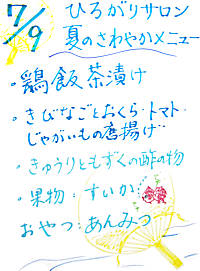 7/9
ひろがりサロン
夏のさわやかメニュー
・鶏飯茶漬け
・きびなごとおくら・トマト・
じゃがいもの唐揚げ
・きゅうりともずくの酢の物
・果物:すいか
おやつ:あんみつ